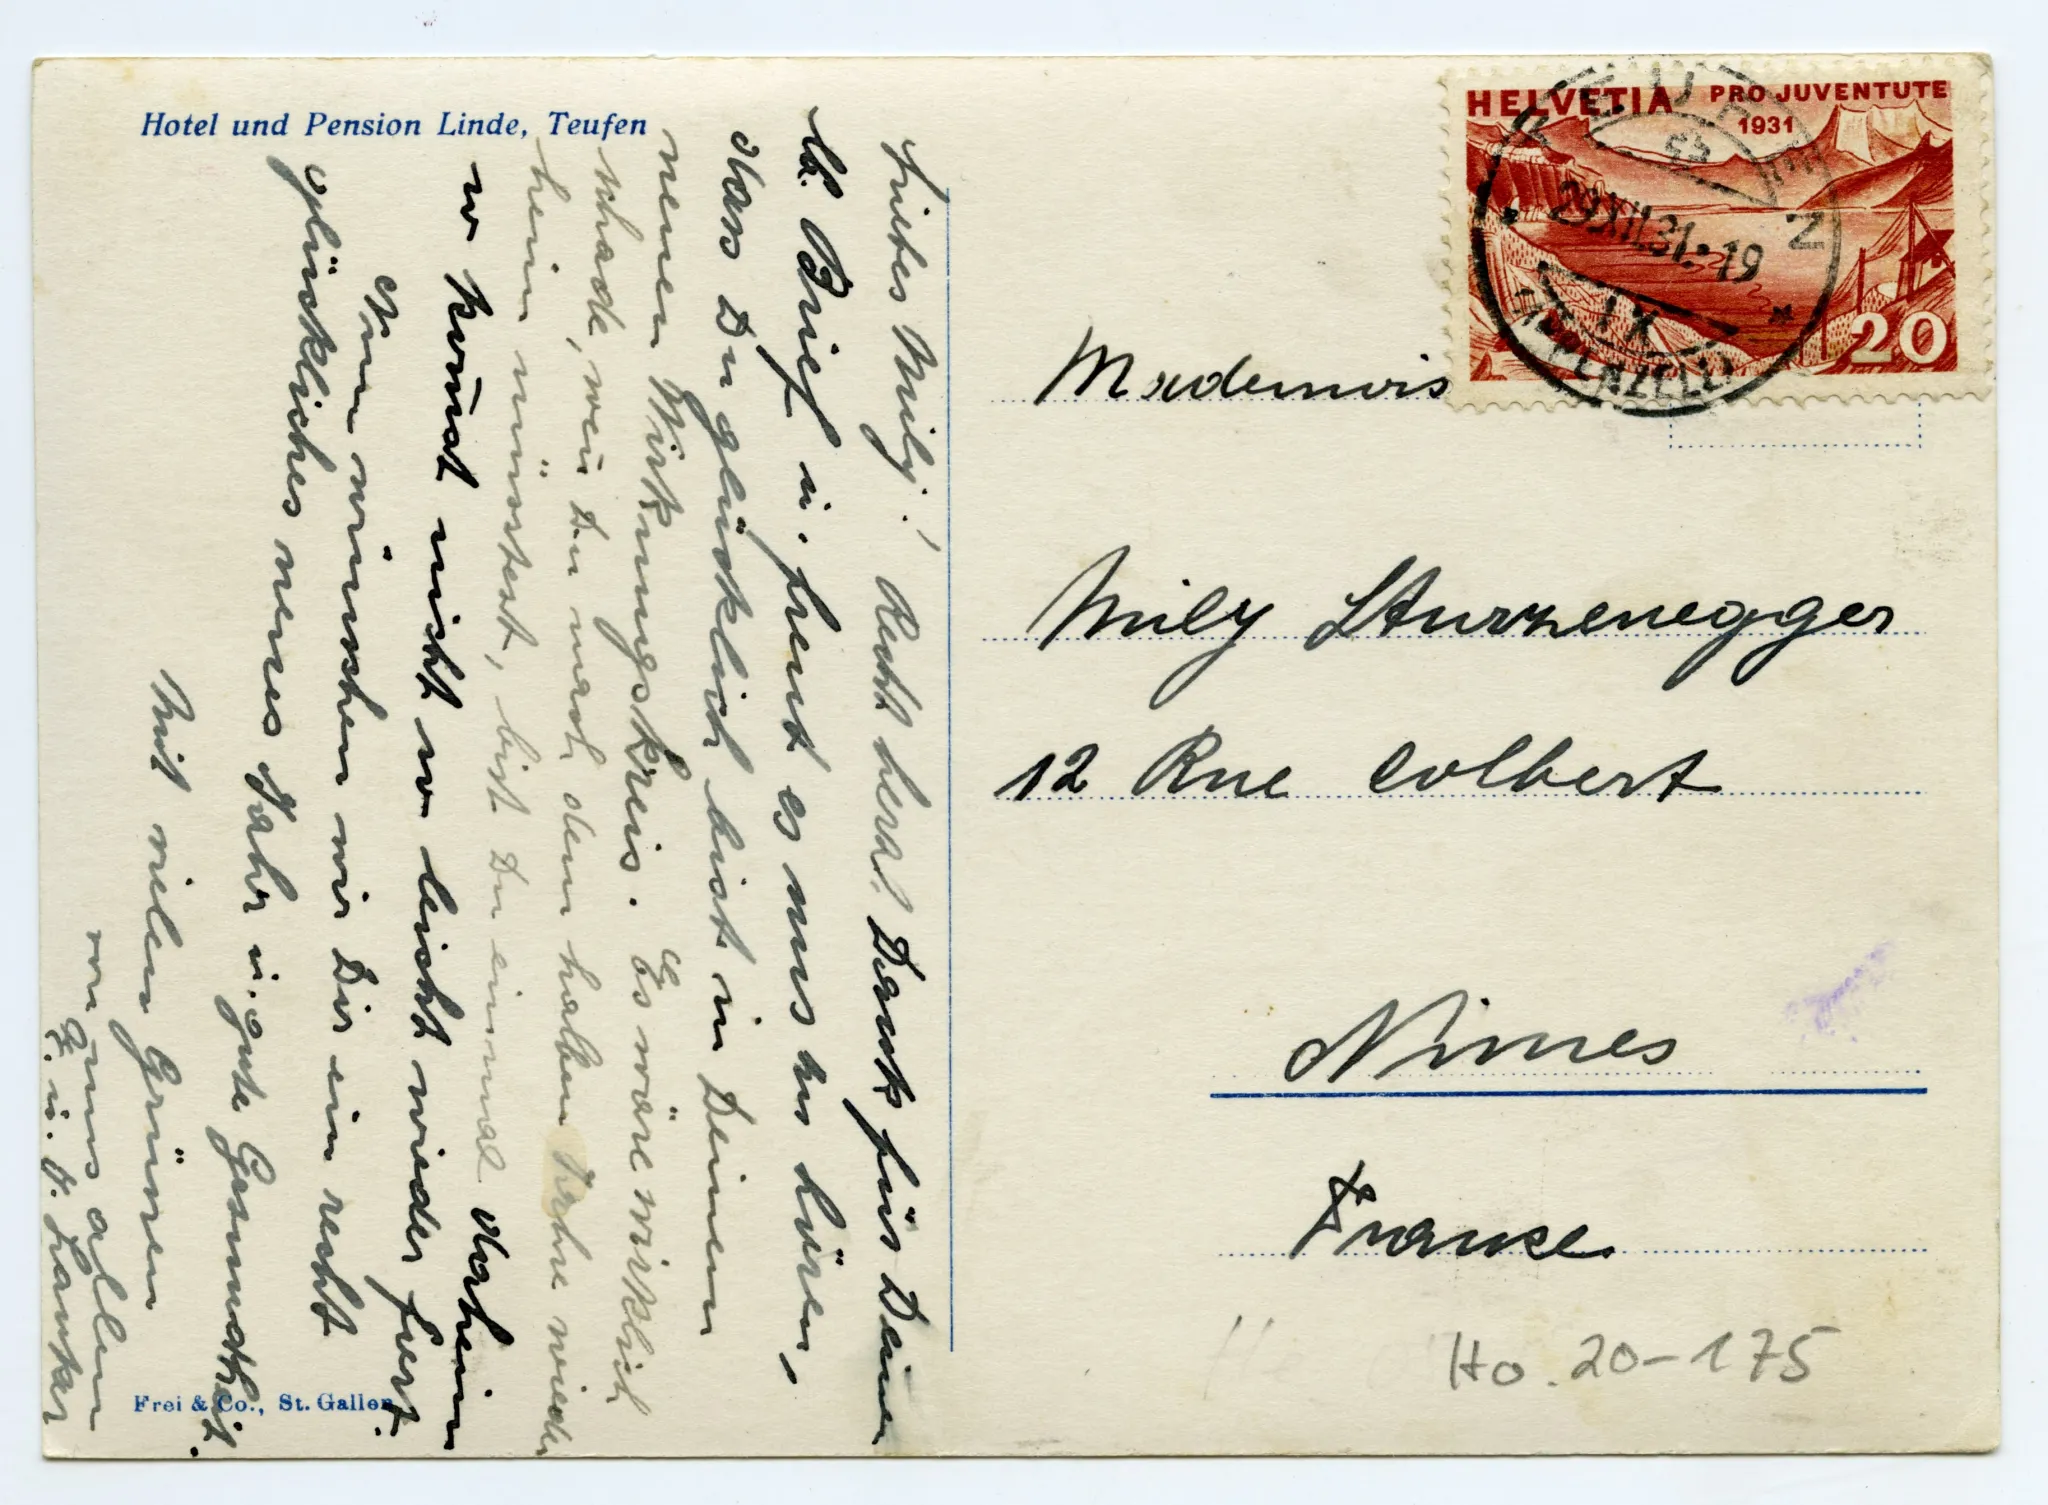 Hotel und Pension Linde, Teufen
Liebes Mily! Recht herzl. Dank für Deinen
lb. Brief u. freut es uns zu hören,
dass Du glücklich bist in Deinem
neuen Wirkungskreis. Es wäre wirklich
schade, weñ Du nach dem halben Jahre wieder
heim müsstest, bist Du einmal daheim
so kom̄st nicht so leicht wieder fort.
Nun wünschen wir Dir ein recht
glückliches neues Jahr u. gute Gesundheit.
Mit vielen Grüssen
von uns allen
u. H. Lanker
Frei & Co., St. Gallen
HELVETIA PRO JUVENTUTE
1931
20
TEUFEN
29.XII.31.-19
IX
(APPENZELL)
Mademois
Mily Sturzenegger
12 Rue Colbert
Nimes
France
Ho. 20-175